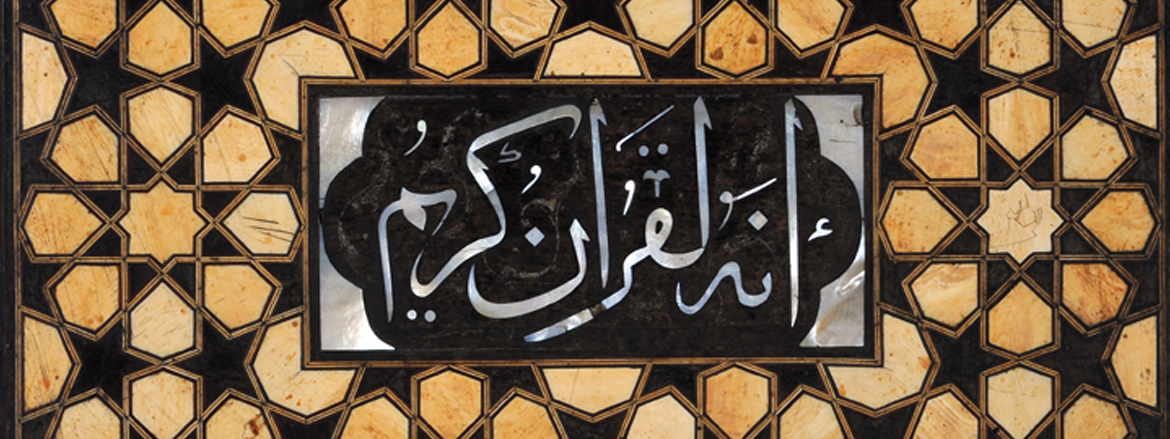 إنه لقرآن كريم